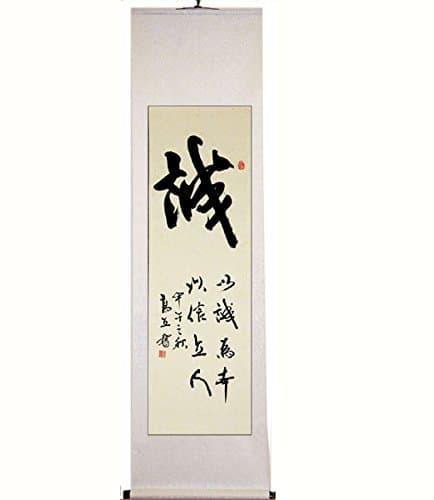 誠
以誠為本
以信立人
甲午之秋